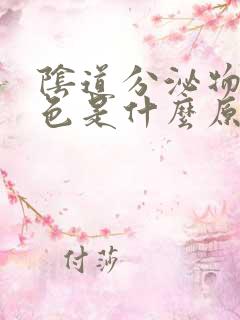 陰道分泌物
色是什麼原
付莎